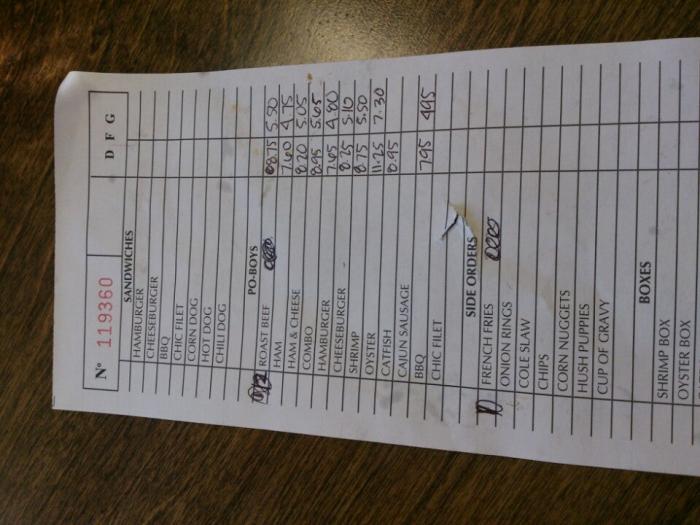 Nº 119360 D F G
SANDWICHES
HAMBURGER
CHEESEBURGER
BBQ
CHIC FILET
CORN DOG
HOT DOG
CHILI DOG
PO-BOYS
ROAST BEEF 8.75 5.50
HAM 7.60 4.75
HAM & CHEESE 8.20 5.05
COMBO 8.95 5.65
HAMBURGER 7.45 4.80
CHEESEBURGER 8.25 5.10
SHRIMP 8.75 5.50
OYSTER 11.25 7.30
CATFISH 8.95
CAJUN SAUSAGE
BBQ 795 495
CHIC FILET
SIDE ORDERS
FRENCH FRIES
ONION RINGS
COLE SLAW
CHIPS
CORN NUGGETS
HUSH PUPPIES
CUP OF GRAVY
BOXES
SHRIMP BOX
OYSTER BOX